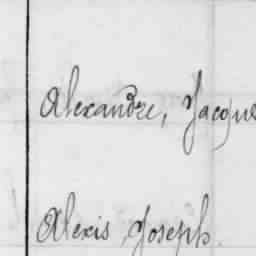 Alexandre, Jacque
Alexis Joseph.